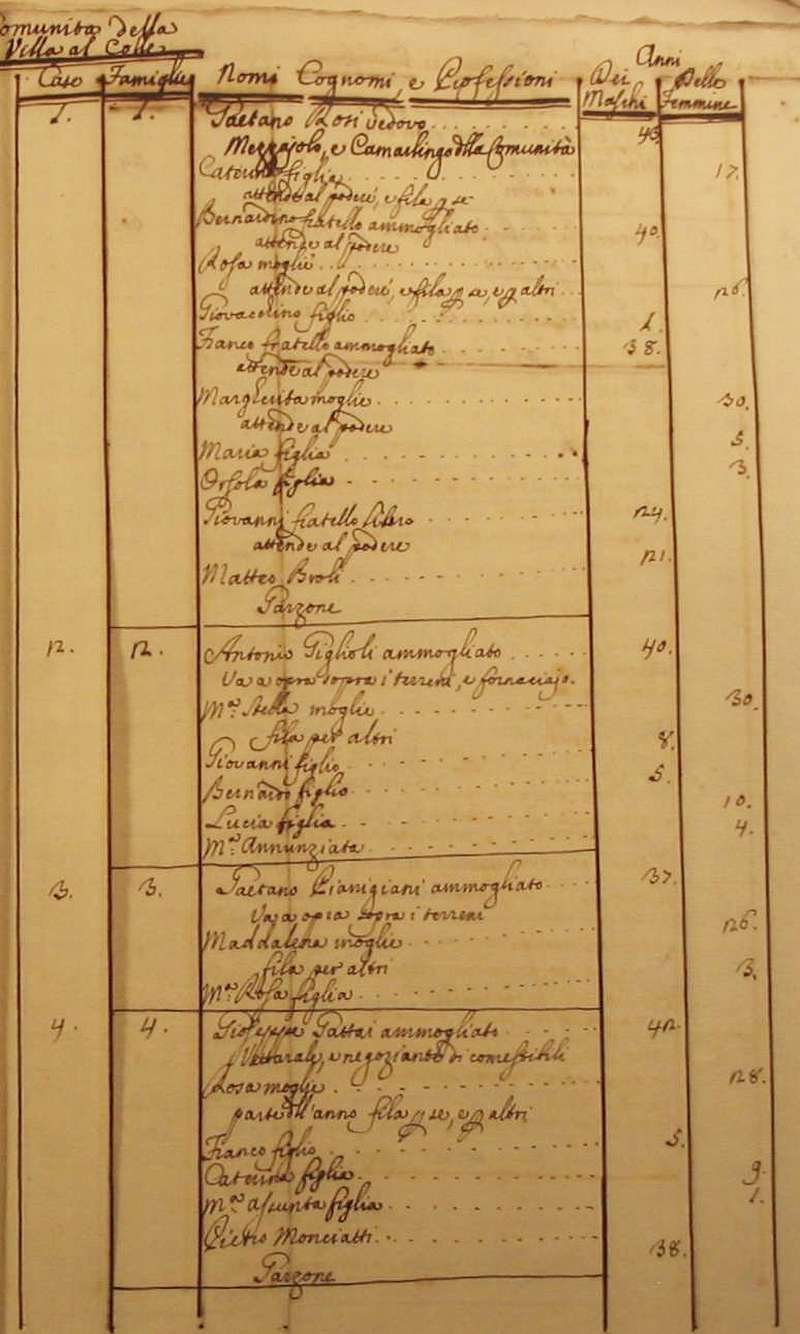 Comunità della
Villa al Colle
Case Famiglie Nomi Cognomi, e Professioni Anni
Dei Maschi Delle Femmine
1. 1. Gaetano Rosi vedovo 43
Mezzajolo, e Camarlingo della Comunità
Caterina figlia 17.
attende al podere, e fila p se
Bernardino fratello ammogliato 40.
attende al podere
Rosa moglie 26.
attende al podere, e fila p se, e p altri
figlio 1.
Franco fratello ammogliato 38.
attende al podere
Margherita moglie 30.
attende al podere
Maria figlia 5.
Orsola figlia 3.
Giovanni fratello libero 24.
attende al podere
Matteo Broli 21.
Garzone
2. 2. Antonio Giglioli ammogliato 40.
Va a opra sopra i terreni, e fornaciajo.
M.a Stella moglie 30.
fila per altri
Giovanni figlio 8.
Bernardo figlio 5.
Lucia figlia 10.
M.a Annunziata 4.
3. 3. Gaetano Pianigiani ammogliato 37.
Va a opra sopra i terreni
Maddalena moglie 26.
fila per altri
M.a Rosa figlia 3.
4. 4. Giuseppe Gattai ammogliato 42.
e negoziante di comestibili
Rosa moglie 28.
parte dell'anno fila p se, e p altri
Franco figlio 5.
Caterina figlia 9.
M.a Assunta figlia 1.
Pietro Monciatti 38.
Garzone